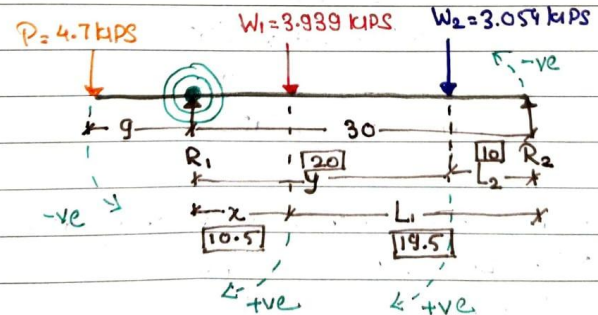 P= 4.7 KIPS
W1=3.939 KIPS
W2=3.054 KIPS
-ve
9
30
R1
20
10
R2
y
L2
-ve
x
L1
10.5
19.5
+ve
+ve